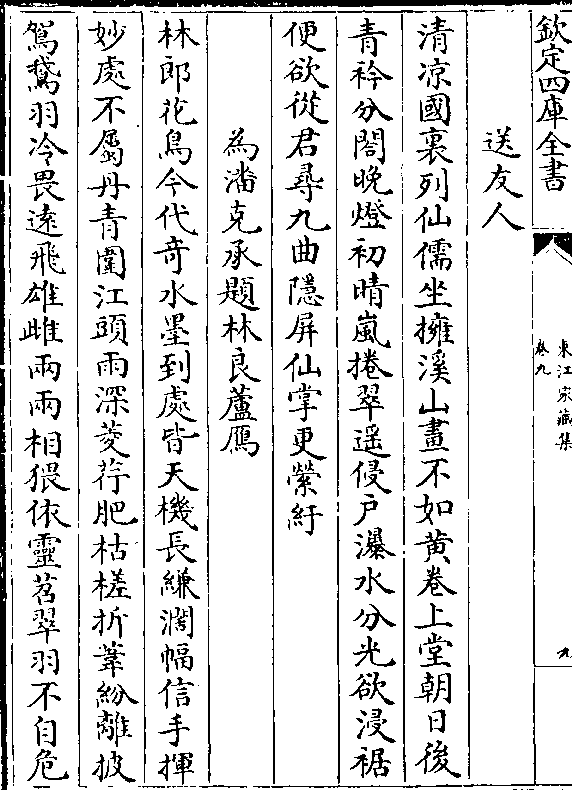 欽定四庫全書
東江家藏集
卷九
九
送友人
清凉國裏列仙儒坐擁溪山畫不如黄卷上堂朝日後
青衿分閤晚燈初晴嵐捲翠遥侵户瀑水分光欲浸裾
便欲從君尋九曲隱屏仙掌更縈紆
為潘克承題林良蘆鴈
林郎花鳥今代竒水墨到處皆天機長縑濶幅信手揮
妙處不屬丹青圍江頭雨深菱荇肥枯槎折葦紛離披
鴐鵞羽冷畏逺飛雄雌兩兩相猥依靈苕翠羽不自危